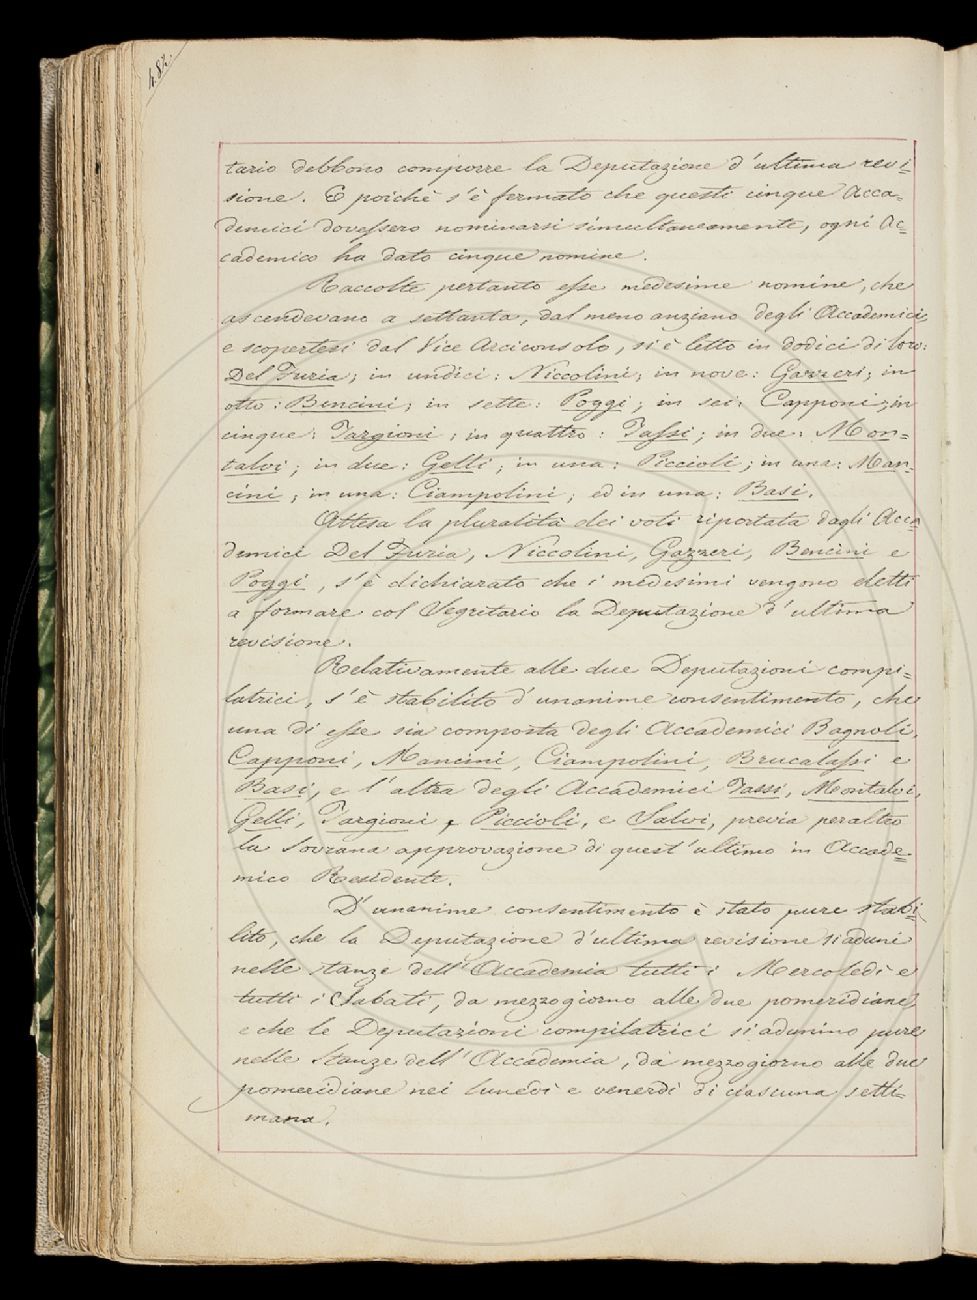 482.
tario debbono comporre la Deputazione d'ultima revi=
sione. E poichè s'è fermato che questi cinque Acca=
demici dovessero nominarsi simultaneamente, ogni Ac=
cademico ha dato cinque nomine.
Raccolte pertanto esse medesime nomine, che
ascendevano a settanta, dal meno anziano degli Accademici,
e scopertesi dal Vice Arciconsolo, si è letto in dodici di loro:
Del Furia; in undici: Niccolini; in nove: Gazzeri; in
otto: Bencini; in sette: Poggi; in sei: Capponi; in
cinque: Targioni; in quattro: Tassi; in due: Mon=
talvi; in due: Gelli; in una: Piccioli; in una: Man=
cini; in una: Ciampolini; ed in una: Basi.
Attesa la pluralità dei voti riportata dagli Acca=
demici Del Furia, Niccolini, Gazzeri, Bencini e
Poggi, s'è dichiarato che i medesimi vengono eletti
a formare col Segretario la Deputazione d'ultima
revisione.
Relativamente alle due Deputazioni compi=
latrici, s'è stabilito d'unanime consentimento, che
una di esse sia composta degli Accademici Bagnoli,
Capponi, Mancini, Ciampolini, Brucalassi e
Basi, e l'altra degli Accademici Tassi, Montalvi,
Gelli, Targioni, Piccioli, e Salvi, previa peraltro
la Sovrana approvazione di quest'ultimo in Accade=
mico Residente.
D'unanime consentimento è stato pure stabi=
lito, che la Deputazione d'ultima revisione si aduni
nelle stanze dell'Accademia tutti i Mercoledì e
tutti i Sabati, da mezzogiorno alle due pomeridiane,
e che le Deputazioni compilatrici si adunino pure
nelle stanze dell'Accademia, da mezzogiorno alle due
pomeridiane nei lunedì e venerdì di ciascuna setti=
mana.